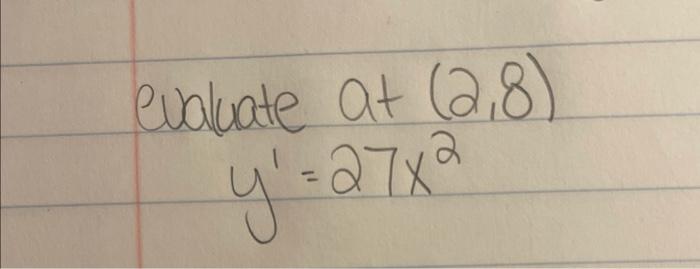 evaluate at (2,8)
y' = 27x²